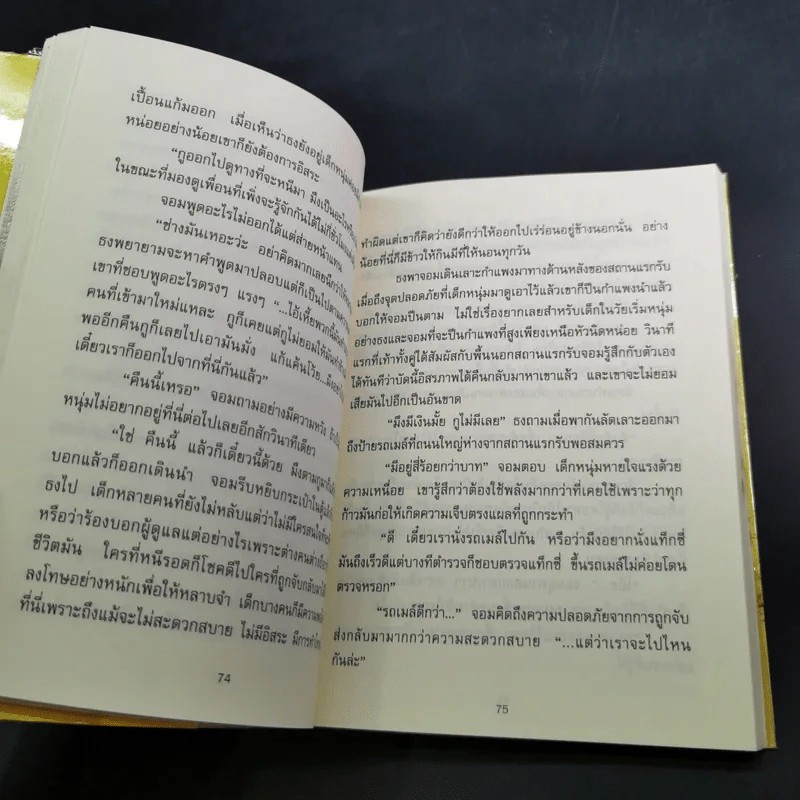 เปื้อนแก้มออก เมื่อเห็นว่าธงยังอยู่เด็กหนุ่ม
หน่อยอย่างน้อยเขาก็ยังต้องการอิสระ
“กูออกไปดูทางที่จะหนีมา มึงเป็นอะไร
ในขณะที่มองดูเพื่อนที่เพิ่งจะรู้จักกันได้ไม่กี่ชั่วโมง
จอมพูดอะไรไม่ออกได้แต่ส่ายหน้าแทน
“ช่างมันเหอะว่ะ อย่าคิดมากเลยนึกว่าให้
ธงพยายามจะหาคำพูดมาปลอบแต่ก็เป็นไปตาม
เขาที่ชอบพูดอะไรตรงๆ แรงๆ “...ไอ้เหี้ยพวกนี้มัน
คนที่เข้ามาใหม่แหละ กูก็เคยแต่กูไม่ยอมให้มัน
พออีกคืนกูก็เลยไปเอามันมั่ง แก้แค้นโว้ย...มึงอย่า
เดี๋ยวเราก็ออกไปจากที่นี่กันแล้ว”
“คืนนี้เหรอ” จอมถามอย่างมีความหวัง
หนุ่มไม่อยากอยู่ที่นี่ต่อไปเลยอีกสักวินาทีเดียว
“ใช่ คืนนี้ แล้วก็เดี๋ยวนี้ด้วย มึงตามกูมา
บอกแล้วก็ออกเดินนำ จอมรีบหยิบกระเป๋าในตู้
ธงไป เด็กหลายคนที่ยังไม่หลับแต่ว่าไม่มีใครสนใจ
หรือว่าร้องบอกผู้ดูแลแต่อย่างไรเพราะต่างคนต่าง
ชีวิตมัน ใครที่หนีรอดก็โชคดีไปใครที่ถูกจับกลับมา
ลงโทษอย่างหนักเพื่อให้หลาบจำ เด็กบางคนก็มีความ
ที่นี่เพราะถึงแม้จะไม่สะดวกสบาย ไม่มีอิสระ มีการ
74
ทำผิดแต่เขาก็คิดว่ายังดีกว่าให้ออกไปเร่ร่อนอยู่ข้างนอกนั่น อย่าง
น้อยที่นี่ก็มีข้าวให้กินมีที่ให้นอนทุกวัน
ธงพาจอมเดินเลาะกำแพงมาทางด้านหลังของสถานแรกรับ
เมื่อถึงจุดปลอดภัยที่เด็กหนุ่มมาดูเอาไว้แล้วเขาก็ปีนกำแพงนำแล้ว
บอกให้จอมปีนตาม ไม่ใช่เรื่องยากเลยสำหรับเด็กในวัยเริ่มหนุ่ม
อย่างธงและจอมที่จะปีนกำแพงที่สูงเพียงเหนือหัวนิดหน่อย วินาที
แรกที่เท้าทั้งคู่ได้สัมผัสกับพื้นนอกสถานแรกรับจอมรู้สึกกับตัวเอง
ได้ทันทีว่าบัดนี้อิสรภาพได้คืนกลับมาหาเขาแล้ว และเขาจะไม่ยอม
เสียมันไปอีกเป็นอันขาด
“มึงมีเงินมั้ย กูไม่มีเลย” ธงถามเมื่อพากันลัดเลาะออกมา
ถึงป้ายรถเมล์ที่ถนนใหญ่ห่างจากสถานแรกรับพอสมควร
“มีอยู่สี่ร้อยกว่าบาท” จอมตอบ เด็กหนุ่มหายใจแรงด้วย
ความเหนื่อย เขารู้สึกว่าต้องใช้พลังมากกว่าที่เคยใช้เพราะว่าทุก
ก้าวมันก่อให้เกิดความเจ็บตรงแผลที่ถูกกระทำ
“ดี เดี๋ยวเรานั่งรถเมล์ไปกัน หรือว่ามึงอยากนั่งแท็กซี่
มันถึงเร็วดีแต่บางทีตำรวจก็ชอบตรวจแท็กซี่ ขึ้นรถเมล์ไม่ค่อยโดน
ตรวจหรอก”
“รถเมล์ดีกว่า...” จอมคิดถึงความปลอดภัยจากการถูกจับ
ส่งกลับมามากกว่าความสะดวกสบาย “...แต่ว่าเราจะไปไหน
กันล่ะ”
75